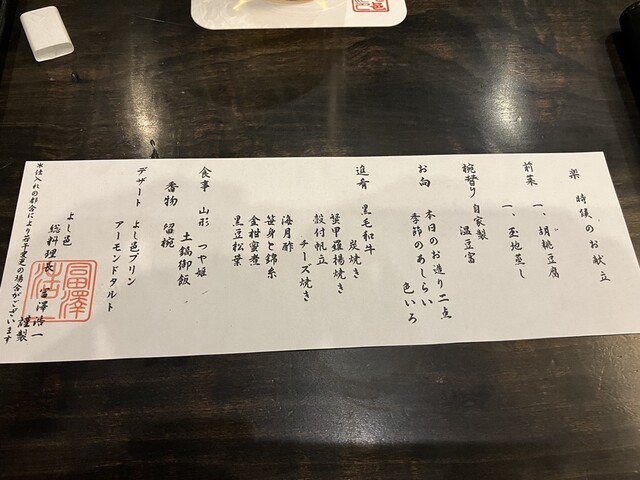 楽 時候のお献立
前菜 一、胡桃豆腐
一、玉地蒸し
椀替り 自家製
温豆富
お向 本日のお造り二点
季節のあしらい 色いろ
進肴 黒毛和牛 炭焼き
蟹甲羅揚焼き
殻付帆立 チーズ焼き
海月酢
笹身と錦糸
金柑蜜煮
黒豆松葉
食事 山形 つや姫 土鍋御飯
香物 留椀
デザート よし邑プリン
アーモンドタルト
よし邑
総料理長 冨澤浩一 謹製
*仕入れの都合により若干変更の場合がございます